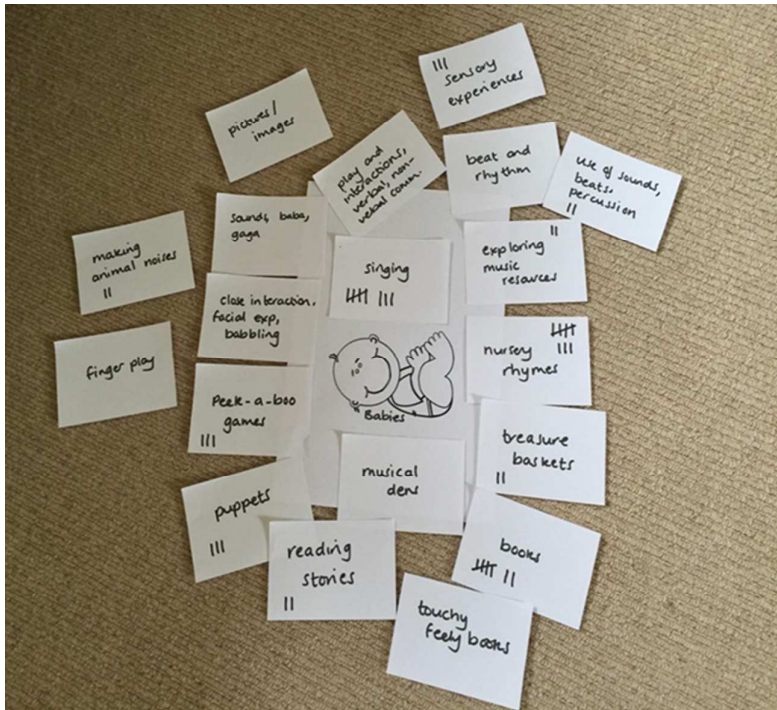 III
sensory
experiences
pictures/
images
play and
interactions,
verbal, non-
verbal comm.
beat and
rhythm
use of sounds,
beats,
percussion
II
sounds, baba,
gaga
making
animal noises
II
singing
IIII III
II
exploring
music
resources
close interaction,
facial exp,
babbling
finger play
IIII
III
nursery
rhymes
Peek-a-boo
games
III
Babies
treasure
baskets
II
musical
dens
puppets
III
reading
stories
II
books
IIII II
touchy
feely books